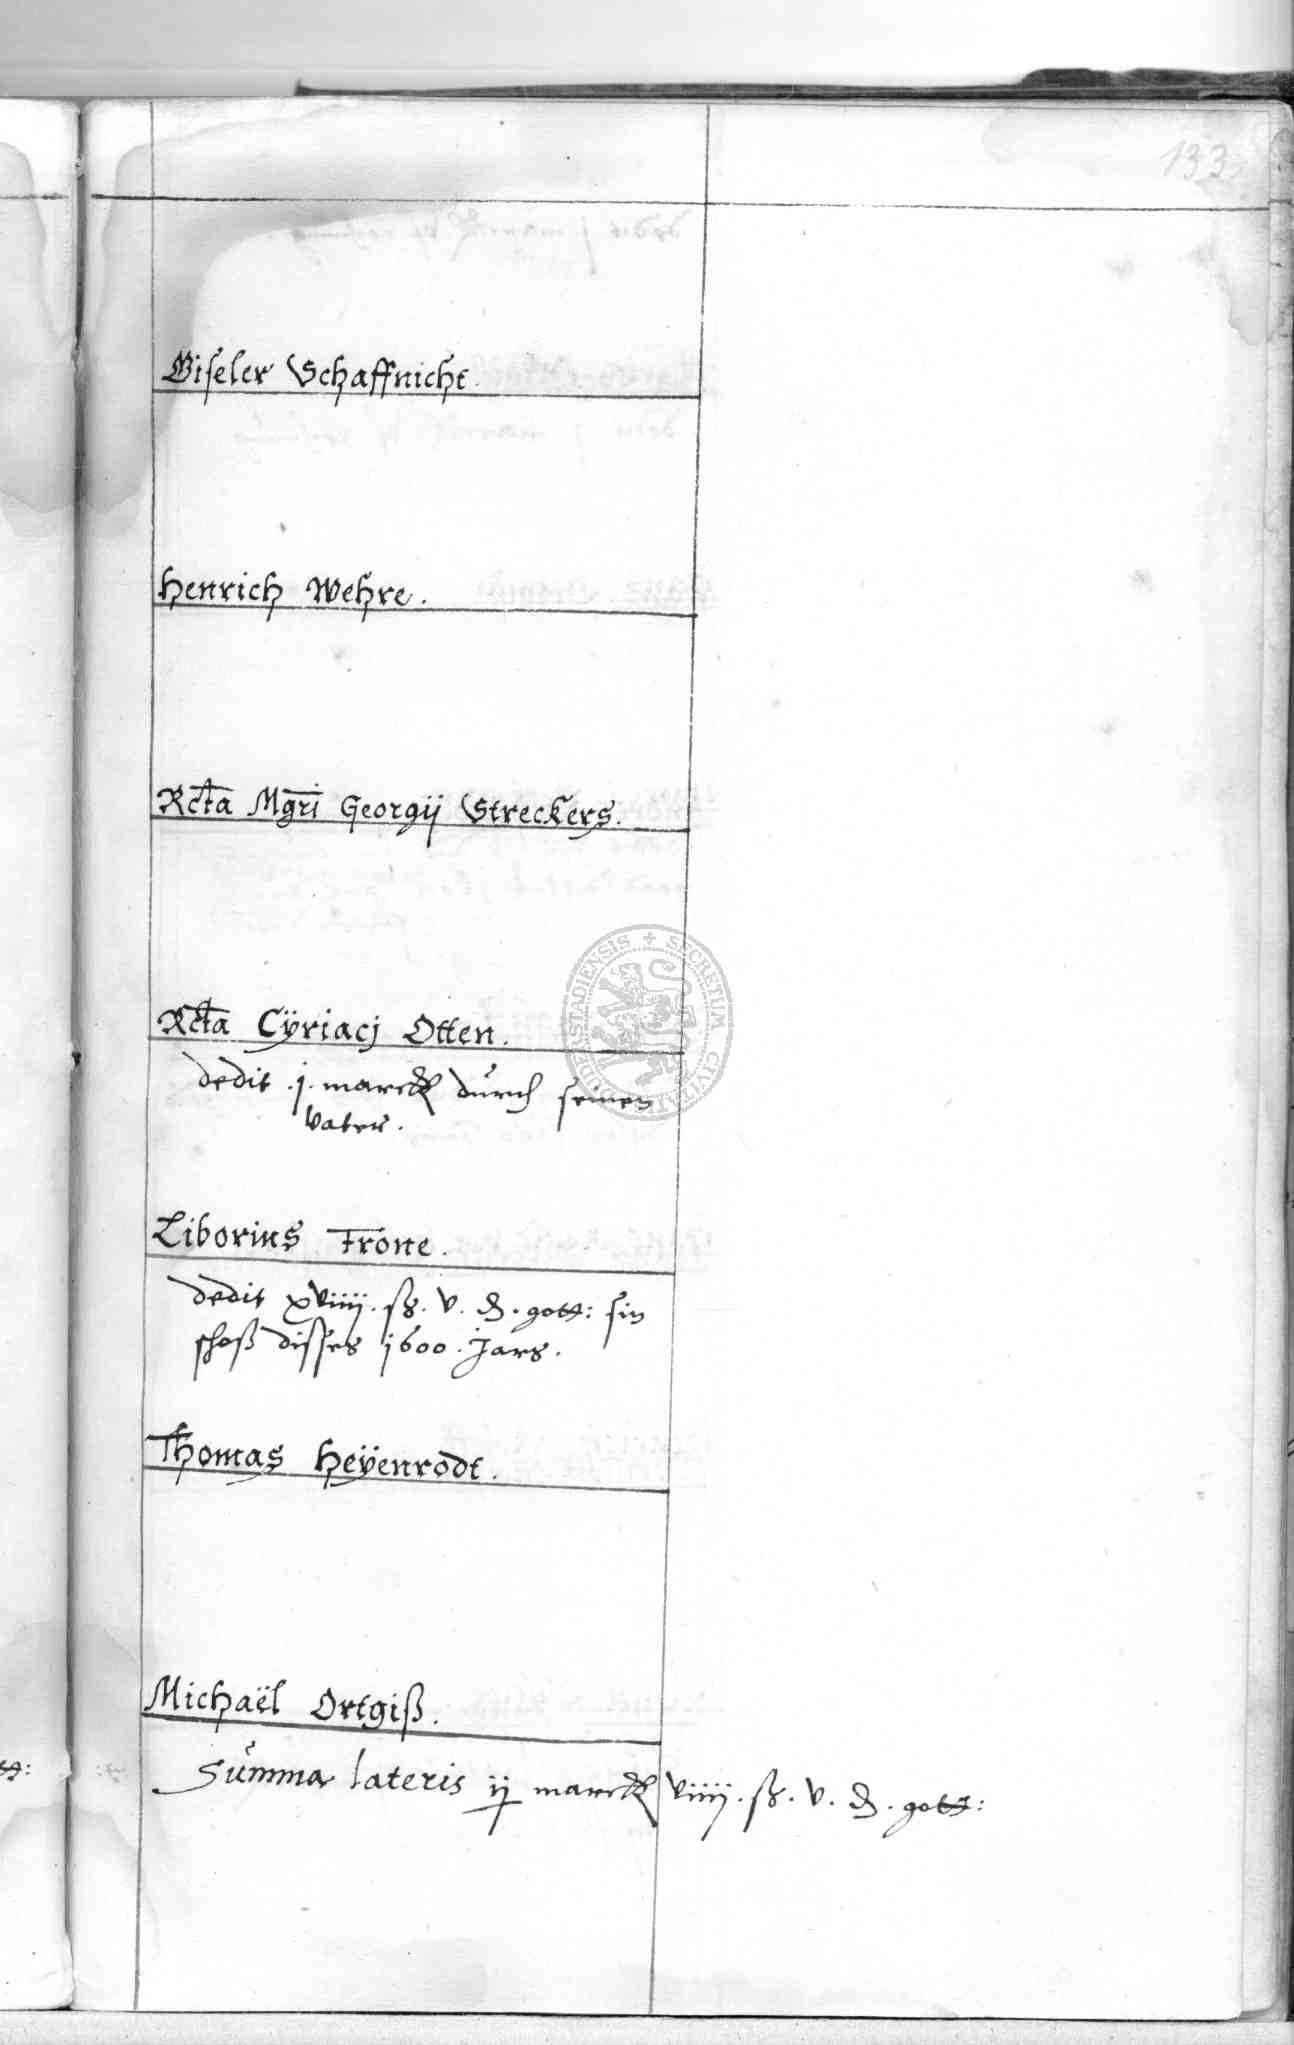 133
Giseler Schaffnicht.
Henrich Wehre.
Rcta Mgri Georgij Streckers.
Rcta Cÿriacj Otten.
dedit .j. marck durch seinen
vatern.
Liborius Trone.
dedit xviiij. ß. v. d. gott: sin
schoß disses 1600. Jars.
Thomas Heÿenrodt.
Michaël Ortgiß.
Summa lateris ij marck viiij. ß. v. d. gott:
SECRETUM CIVITATIS DUDERSTADIENSIS